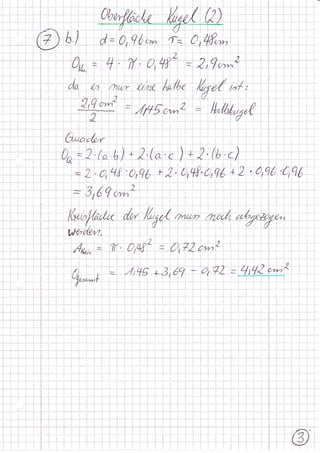 Oberfläche Kugel (2)
7 b.) d = 0,96 cm r = 0,48 cm
O_Ku = 4 · π · 0,48² = 2,9 cm²
da es nur eine halbe Kugel ist:
2,9 cm² / 2 = 1,45 cm² = Halbkugel
Quader
O_Q = 2·(a·b) + 2·(a·c) + 2·(b·c)
= 2·0,48·0,96 + 2·0,48·0,96 + 2·0,96·0,96
= 3,69 cm²
Kreisfläche der Kugel muss noch abgezogen
werden.
= π · 0,48² = 0,72 cm²
O_gesamt = 1,45 + 3,69 - 0,72 = 4,42 cm²
3